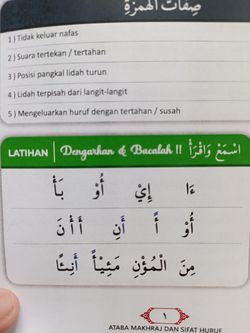 صِفَاتُ الْهَمْزَةِ
1 ) Tidak keluar nafas
2 ) Suara tertekan / tertahan
3 ) Posisi pangkal lidah turun
4 ) Lidah terpisah dari langit-langit
5 ) Mengeluarkan huruf dengan tertahan / susah
LATIHAN | Dengarkan & Bacalah !! اِسْمَعْ وَاقْرَأْ
ءَا إِيْ أُوْ بَأْ
أُوْ أً أَنِ أَأْنَ
مِنَ الْمُؤْنِ
١
ATABA MAKHRAJ DAN SIFAT HURUF